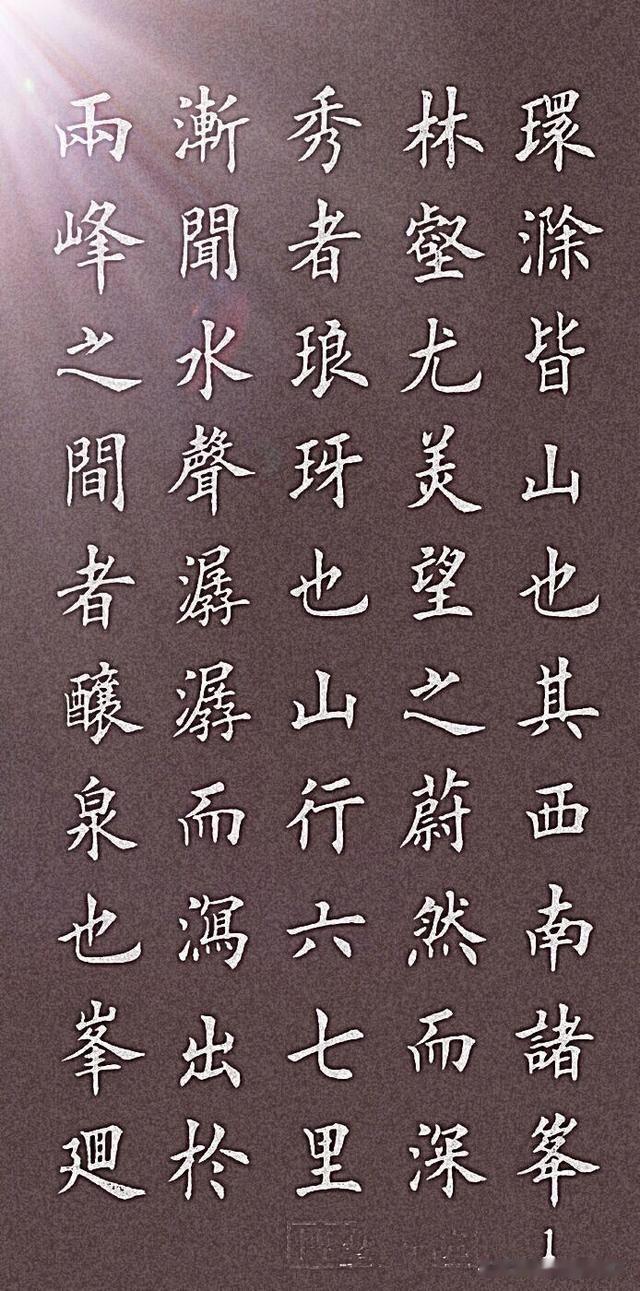 環滁皆山也其西南諸峯
林壑尤美望之蔚然而深
秀者琅玡也山行六七里
漸聞水聲潺潺而瀉出於
兩峰之間者醸泉也峯廻
1